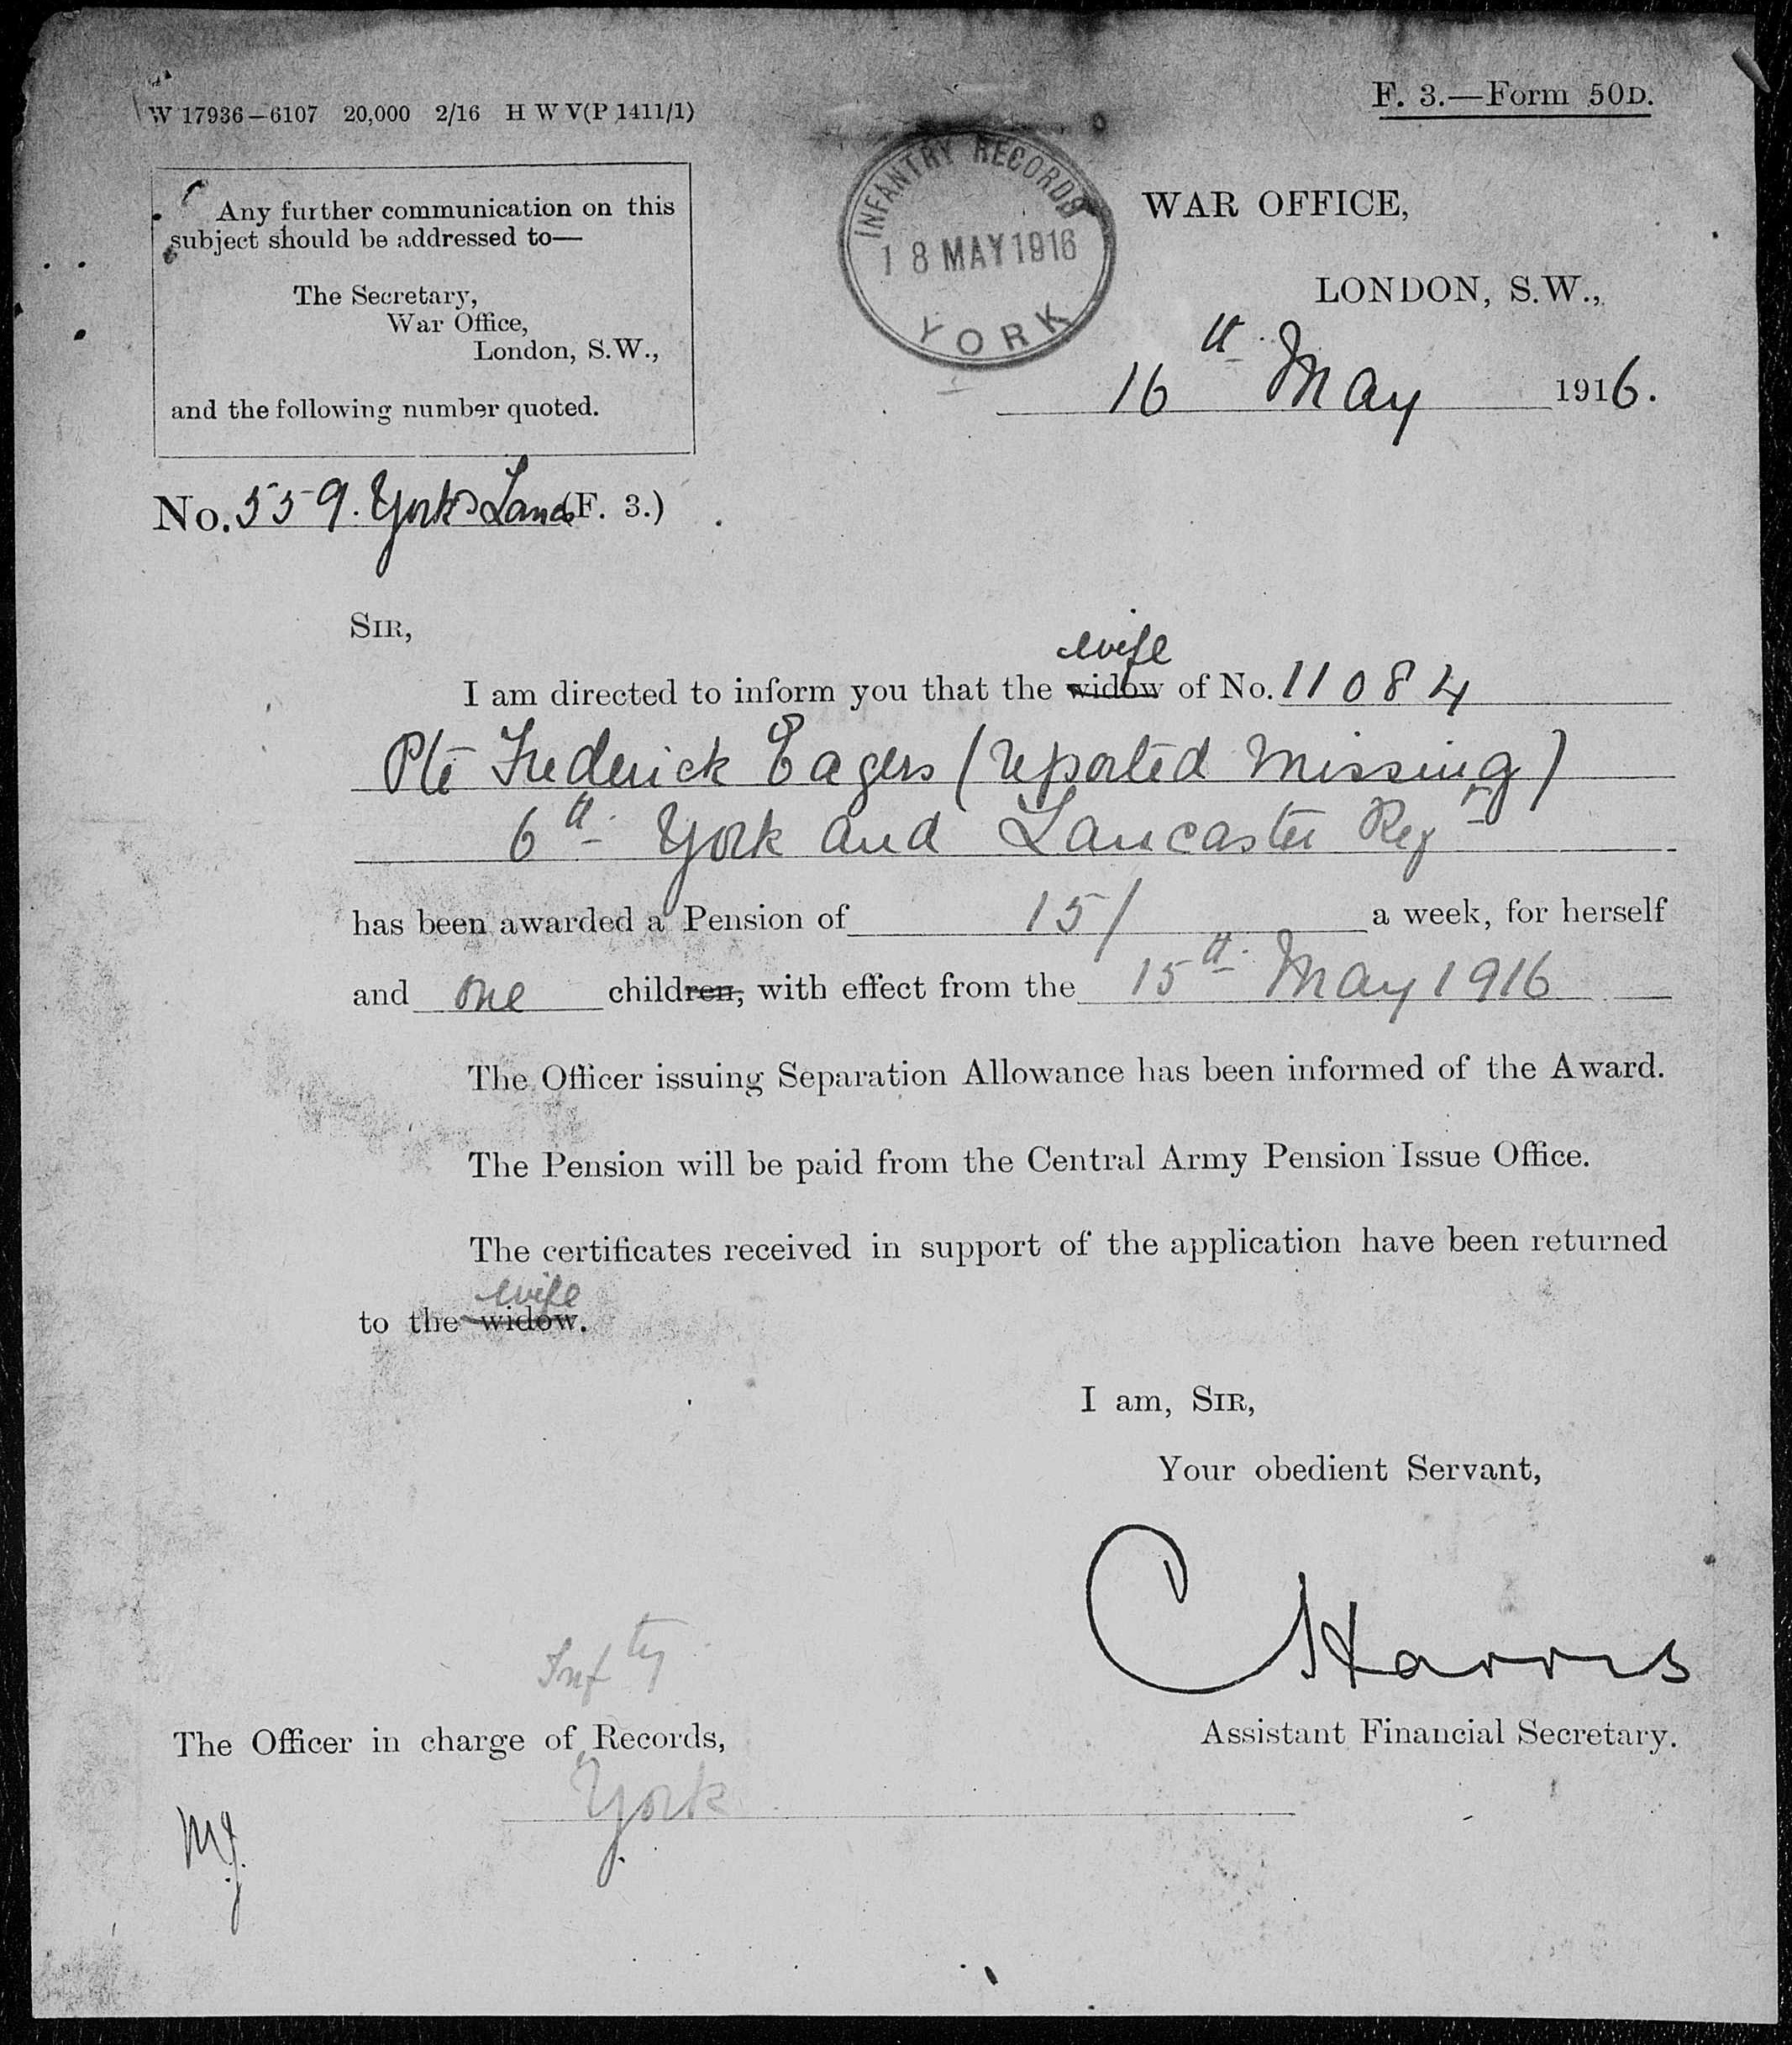 W 17936—6107 20,000 2/16 H W V(P 1411/1)
F. 3.—Form 50D.
Any further communication on this
subject should be addressed to—
The Secretary,
War Office,
London, S.W.,
and the following number quoted.
INFANTRY RECORDS
18 MAY 1916
YORK
WAR OFFICE,
LONDON, S.W.,
16th May 1916.
No. 559. York & Lancs (F. 3.)
SIR,
wife
I am directed to inform you that the widow of No. 11084
Pte Frederick Eagers (reported missing)
6th York and Lancaster Regt
has been awarded a Pension of 15/ a week, for herself
and one children, with effect from the 15th May 1916
The Officer issuing Separation Allowance has been informed of the Award.
The Pension will be paid from the Central Army Pension Issue Office.
The certificates received in support of the application have been returned
wife
to the widow.
I am, SIR,
Your obedient Servant,
C Harris
Assistant Financial Secretary.
Infty
The Officer in charge of Records,
York